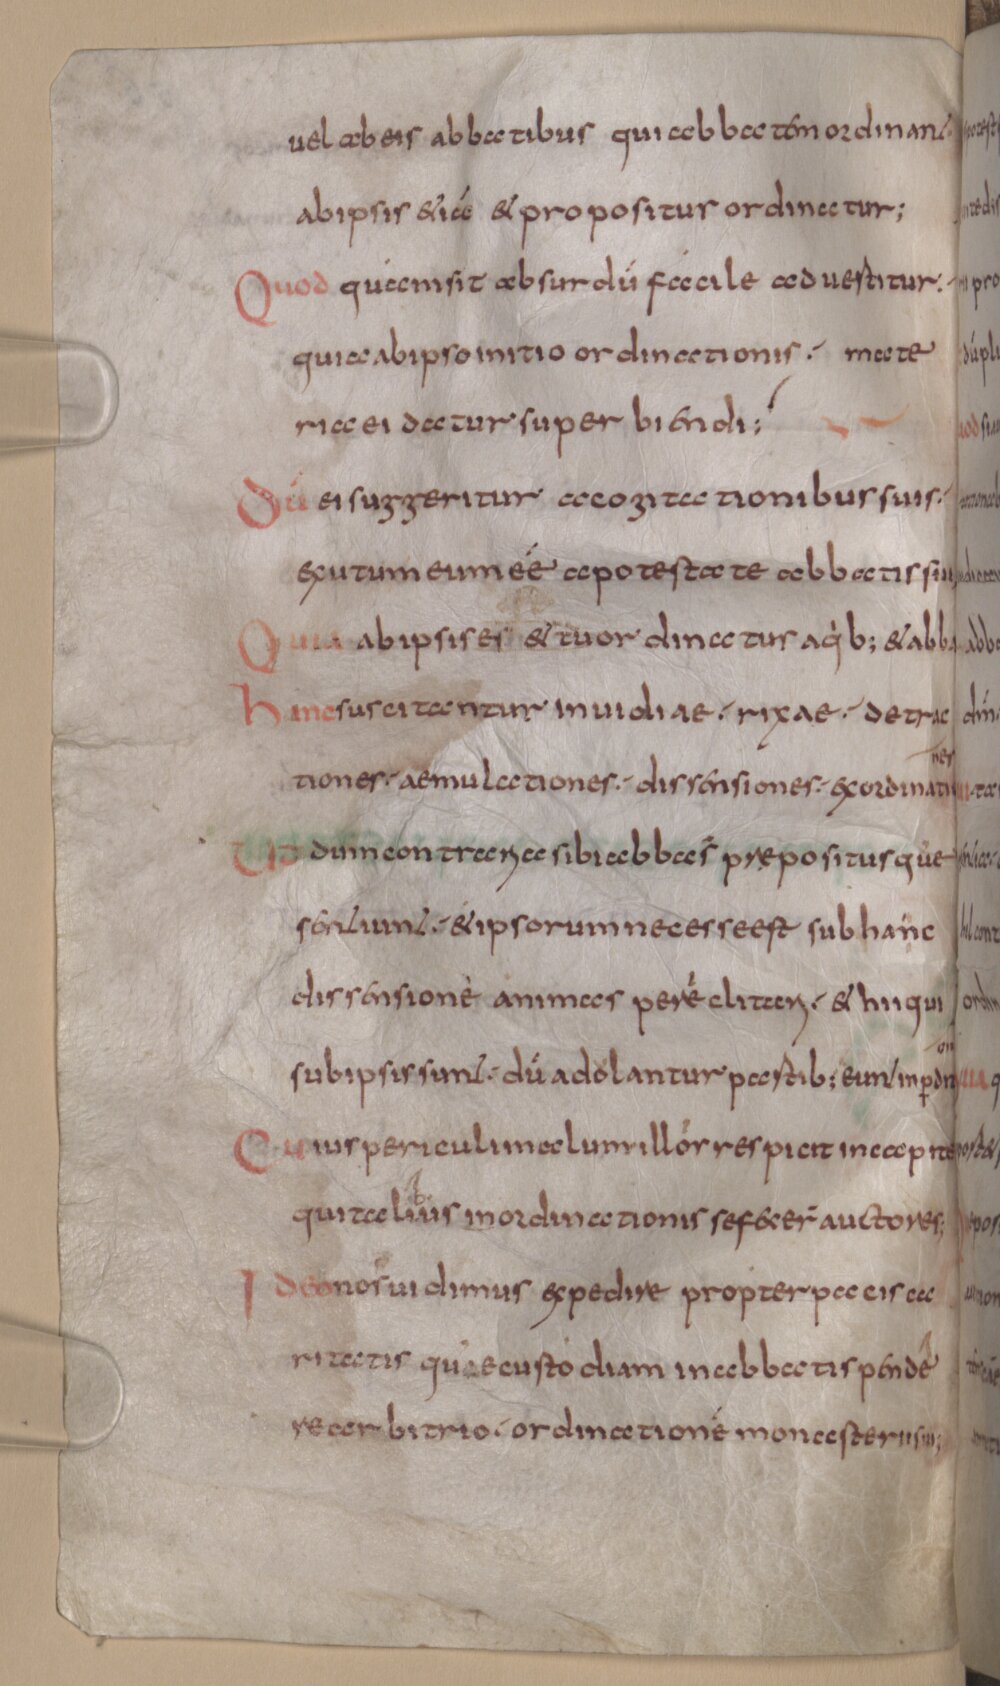 uel ab eis abbatibus qui abbatem ordinant
ab ipsis &iā & propositur ordinatur;
Quod quam sit absurdū facile aduertitur.
quia ab ipso initio ordinationis. mate
ria ei datur superbiendi;
Dū ei suggeritur a cogitationibus suis.
exutum eum eē a potestate abbatis sui
Quia ab ipsis es & tu ordinatus a quib; & abba
Hinc suscitantur inuidiae. rixae. detrac
tiones. aemulationes. dissensiones. exordinatio
nes
Ut dum contraria sibi abbas prepositusque
sentiunt. & ipsorum necesse est sub hanc
dissensionē animas pereclitari. & hii qui
sub ipsis sunt. dū adolantur partib; eunt in pdn
on
Cuius periculi malum illor respicit in capite
qui talibus inordinationis se fecer auctores;
Ideo nos uidimus expedire propter pacis ca
ritatis quae custodiam in abbatis pende
re arbitrio. ordinationē monasterii sui;